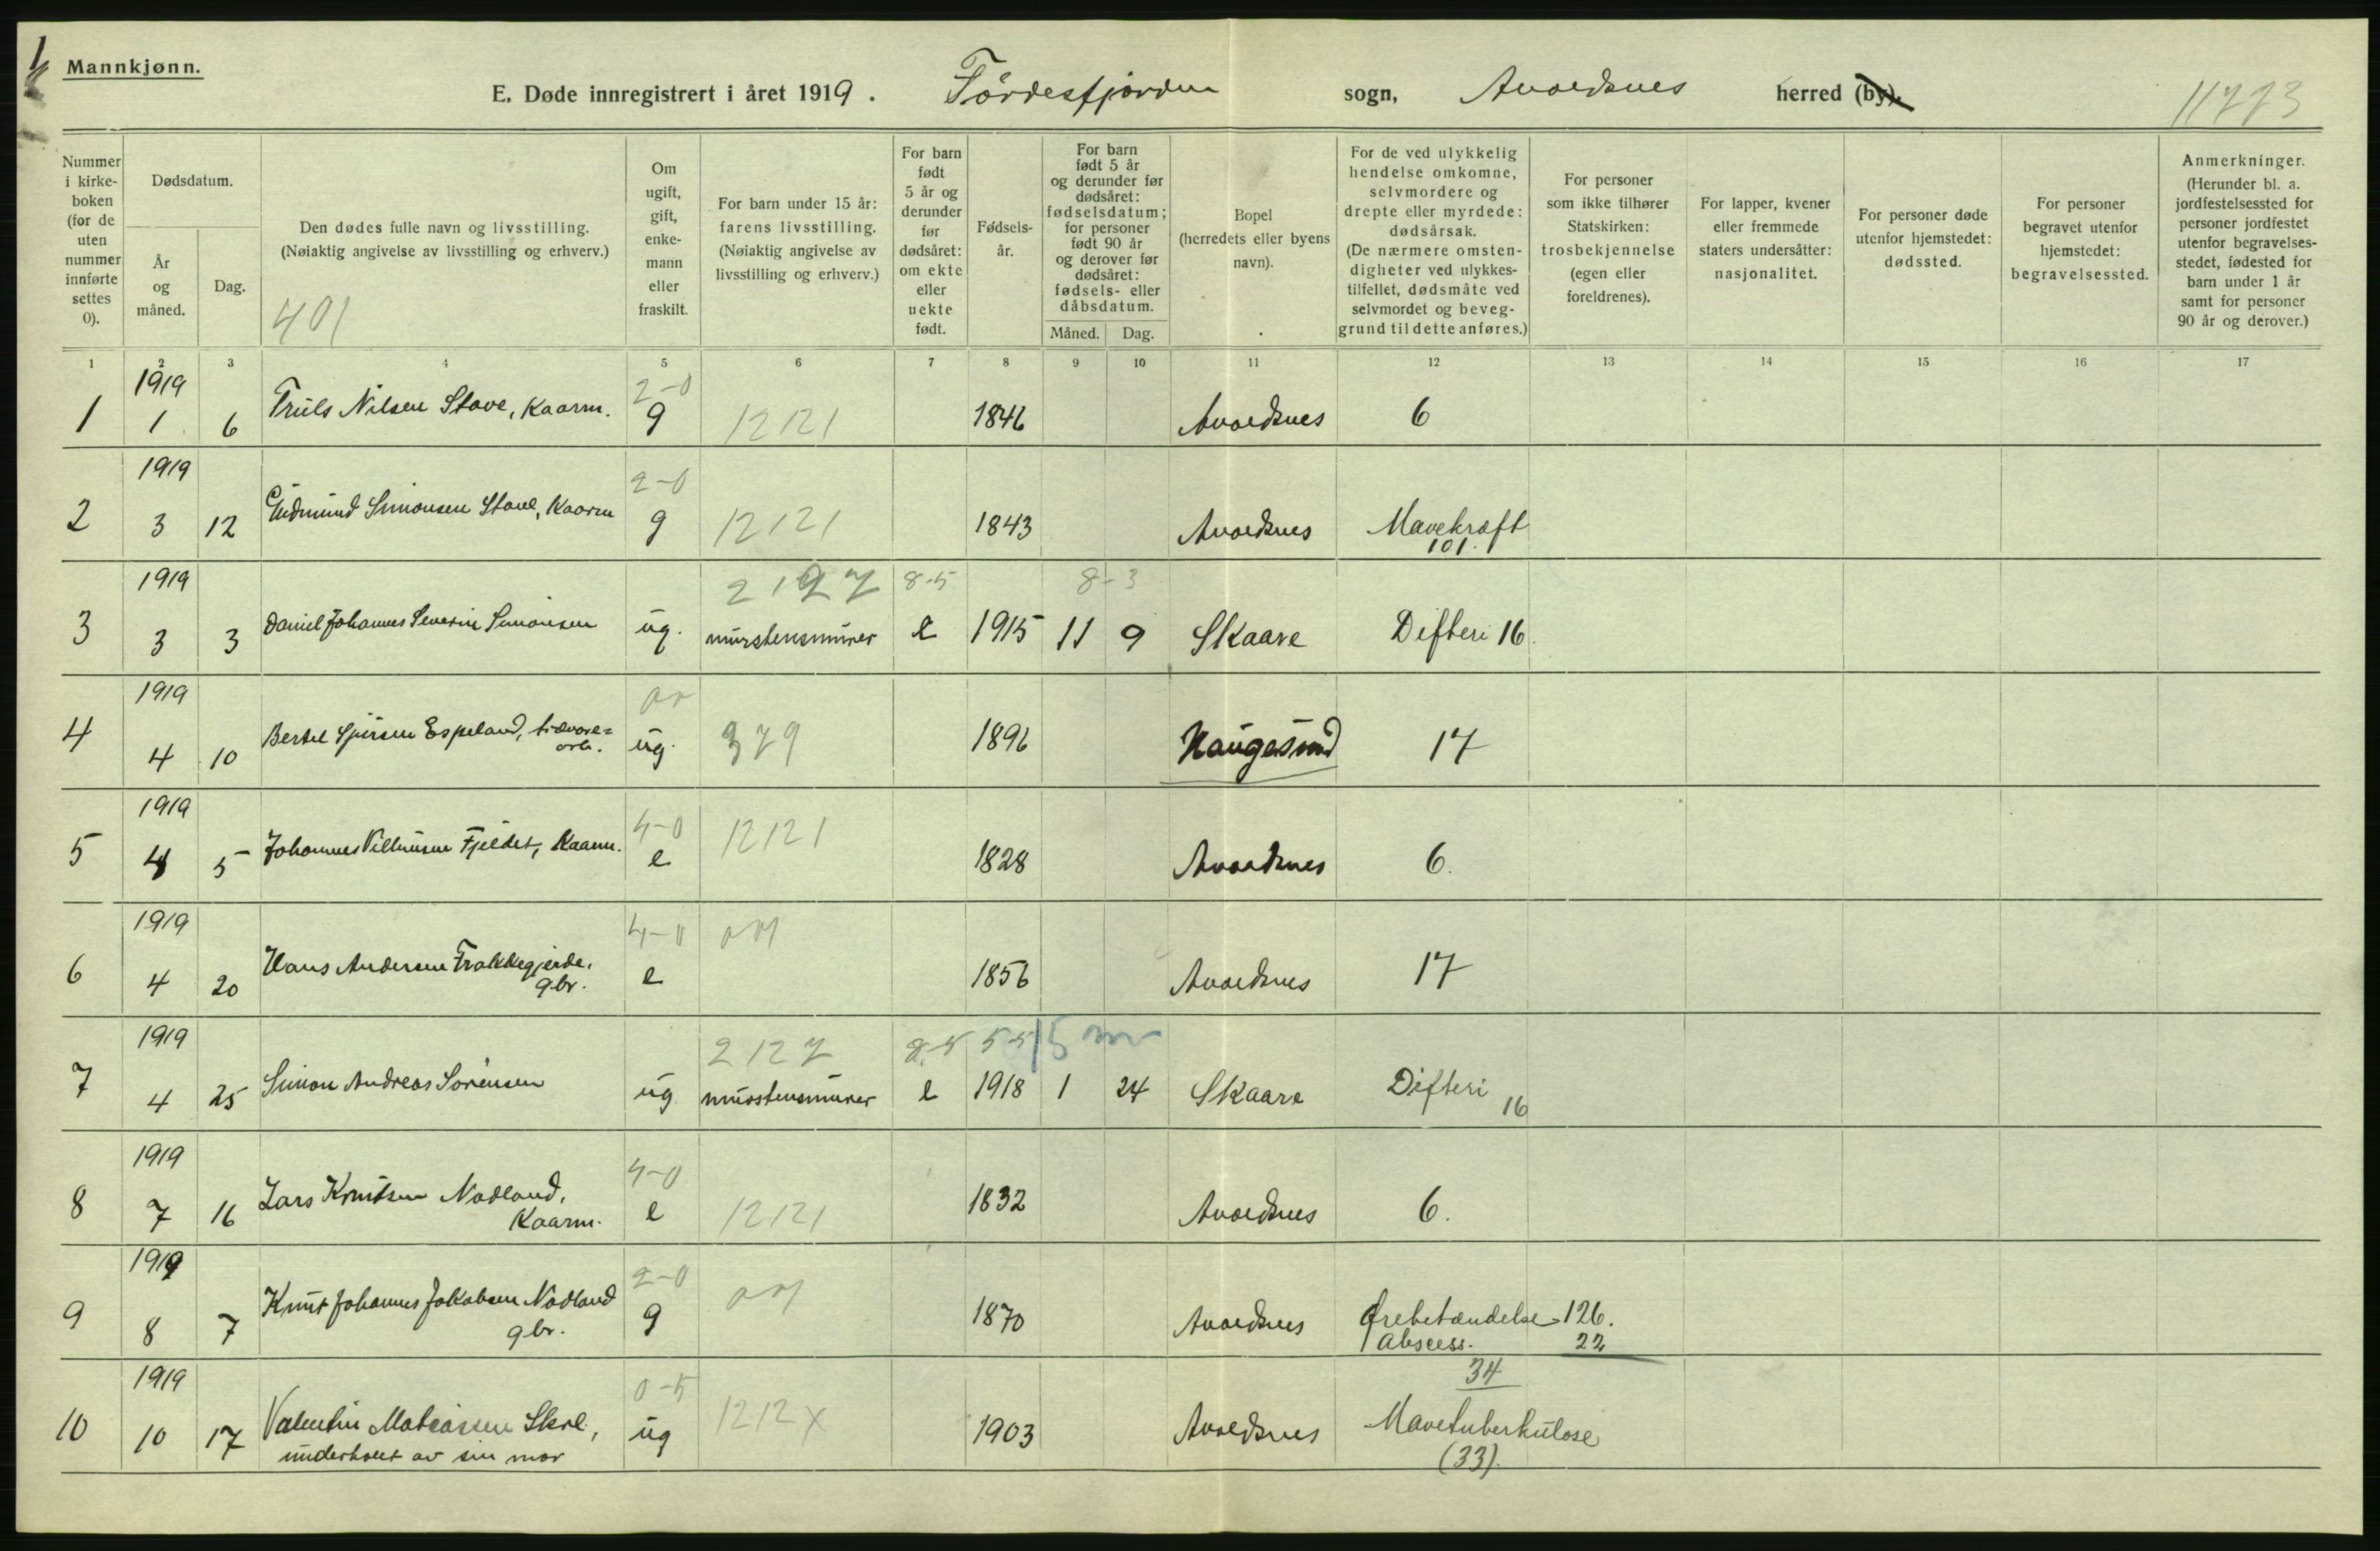 Mannkjønn.
E. Døde innregistrert i året 1919. Førdesfjorden sogn, Avaldsnes herred (by).
11773
Nummer i kirkeboken (for de uten nummer innførte settes 0).
Dødsdatum.
År og måned.
Dag.
Den dødes fulle navn og livsstilling.
(Nøiaktig angivelse av livsstilling og erhverv.)
401
Om ugift, gift, enkemann eller fraskilt.
For barn under 15 år: farens livsstilling.
(Nøiaktig angivelse av livsstilling og erhverv.)
For barn født 5 år og derunder før dødsåret: om ekte eller uekte født.
Fødselsår.
For barn født 5 år og derunder før dødsåret: fødselsdatum; for personer født 90 år og derover før dødsåret: fødsels- eller dåbsdatum.
Måned. Dag.
Bopel (herredets eller byens navn).
For de ved ulykkelig hendelse omkomne, selvmordere og drepte eller myrdede: dødsårsak.
(De nærmere omstendigheter ved ulykkestilfellet, dødsmåte ved selvmordet og beveggrund til dette anføres.)
For personer som ikke tilhører Statskirken: trosbekjennelse (egen eller foreldrenes).
For lapper, kvener eller fremmede staters undersåtter: nasjonalitet.
For personer døde utenfor hjemstedet: dødssted.
For personer begravet utenfor hjemstedet: begravelsessted.
Anmerkninger.
(Herunder bl. a. jordfestelsessted for personer jordfestet utenfor begravelsesstedet, fødested for barn under 1 år samt for personer 90 år og derover.)
1 2 3 4 5 6 7 8 9 10 11 12 13 14 15 16 17
1919 2-0
1 1 6 Truls Nilsen Stave, Kaarm. g 12121 1846 Avaldsnes 6
1919 2-0
2 3 12 Gudmund Simonsen Stave, Kaarm g 12121 1843 Avaldsnes Mavekræft
101.
1919 2127 8-5 8-3
3 3 3 Daniel Johannes Severin Simonsen ug. murstensmurer e 1915 11 9 Skaare Difteri 16.
1919
4 4 10 Bertel Sjursen Espeland, ug. 379 1896 Haugesund 17
1919 4-0 12121
5 4 5 Johannes Fjeldet, Kaarm. e 1828 Avaldsnes 6.
1919 4-0
6 4 20 Hans Andersen Frakkegjerde, e 1856 Avaldsnes 17
gbr.
1919 2127 8-5 5-5 15 mn
7 4 25 Simon Andreas Sørensen ug murstensmurer e 1918 1 24 Skaare Difteri 16
1919 4-0
8 7 16 Lars Knutsen Nodland, e 12121 1832 Avaldsnes 6.
Kaarm.
1919 2-0
9 8 7 Knut Johannes Jakobsen Nodland g 1870 Avaldsnes Ørebetændelse 126.
gbr. Abscess. 22
1919 0-5 34
10 10 17 Valentin Matiassen Skre, ug 1212x 1903 Avaldsnes Mavetuberkulose
underholdt av sin mor (33).